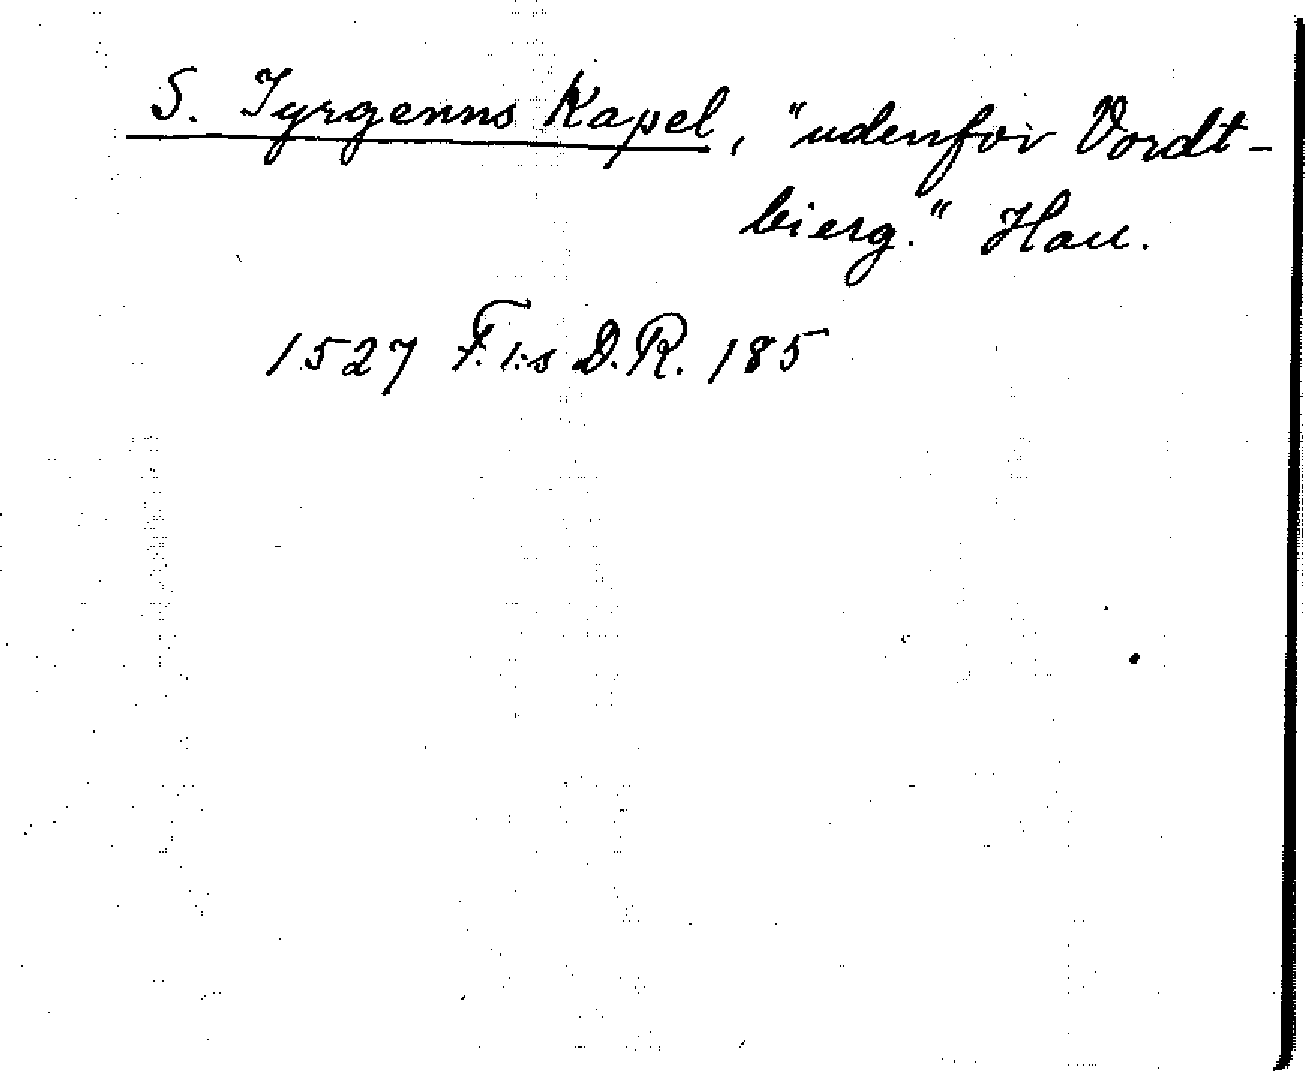 S. Jyrgenns Kapel, "udenfor Vordt-
bierg." Hau.
1527 F. I:s D.R. 185